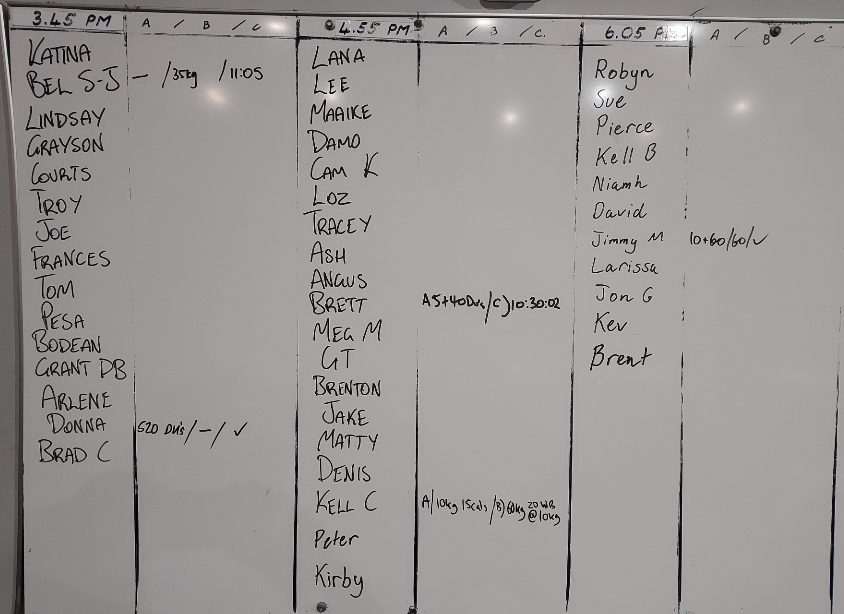 3.45 PM A / B / C
KATINA
BEL S-J — /35kg /11:05
LINDSAY
GRAYSON
COURTS
TROY
JOE
FRANCES
TOM
PESA
BODEAN
GRANT DB
ARLENE
DONNA 520 DU's / — / ✓
BRAD C
4.55 PM A / B / C.
LANA
LEE
MAAIKE
DAMO
CAM K
LOZ
TRACEY
ASH
ANGUS
BRETT A5+40Dus/C)10:30:02
MEG M
GT
BRENTON
JAKE
MATTY
DENIS
KELL C A/10kg 15cals /B)60kg 20 WB @10kg
Peter
Kirby
6.05 PM A / B / C
Robyn
Sue
Pierce
Kell B
Niamh
David
Jimmy M 10+60/60/✓
Larissa
Jon G
Kev
Brent